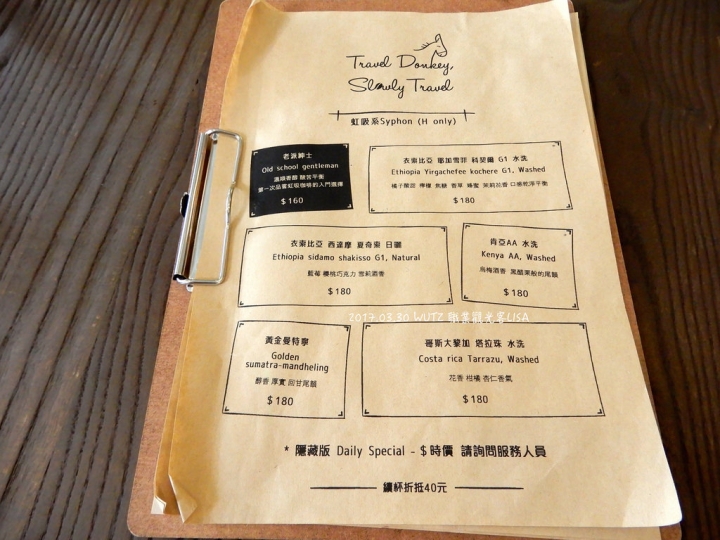 Travel Donkey,
Slowly Travel
虹吸系Syphon (H only)
老派紳士
Old school gentleman
溫順香醇 酸苦平衡
第一次品嘗虹吸咖啡的入門選擇
$160
衣索比亞 耶加雪菲 科契爾 G1 水洗
Ethiopia Yirgachefee kochere G1, Washed
橘子酸甜 檸檬 焦糖 香草 蜂蜜 茉莉花香 口感乾淨平衡
$180
衣索比亞 西達摩 夏奇索 日曬
Ethiopia sidamo shakisso G1, Natural
藍莓 櫻桃巧克力 雪莉酒香
$180
肯亞AA 水洗
Kenya AA, Washed
烏梅酒香 黑醋栗般的尾韻
$180
2017.03.30 WUTZ 職業觀光客LISA
黃金曼特寧
Golden
sumatra-mandheling
醇香 厚實 回甘尾韻
$180
哥斯大黎加 塔拉珠 水洗
Costa rica Tarrazu, Washed
花香 柑橘 杏仁香氣
$180
* 隱藏版 Daily Special - $時價 請詢問服務人員
續杯折抵40元